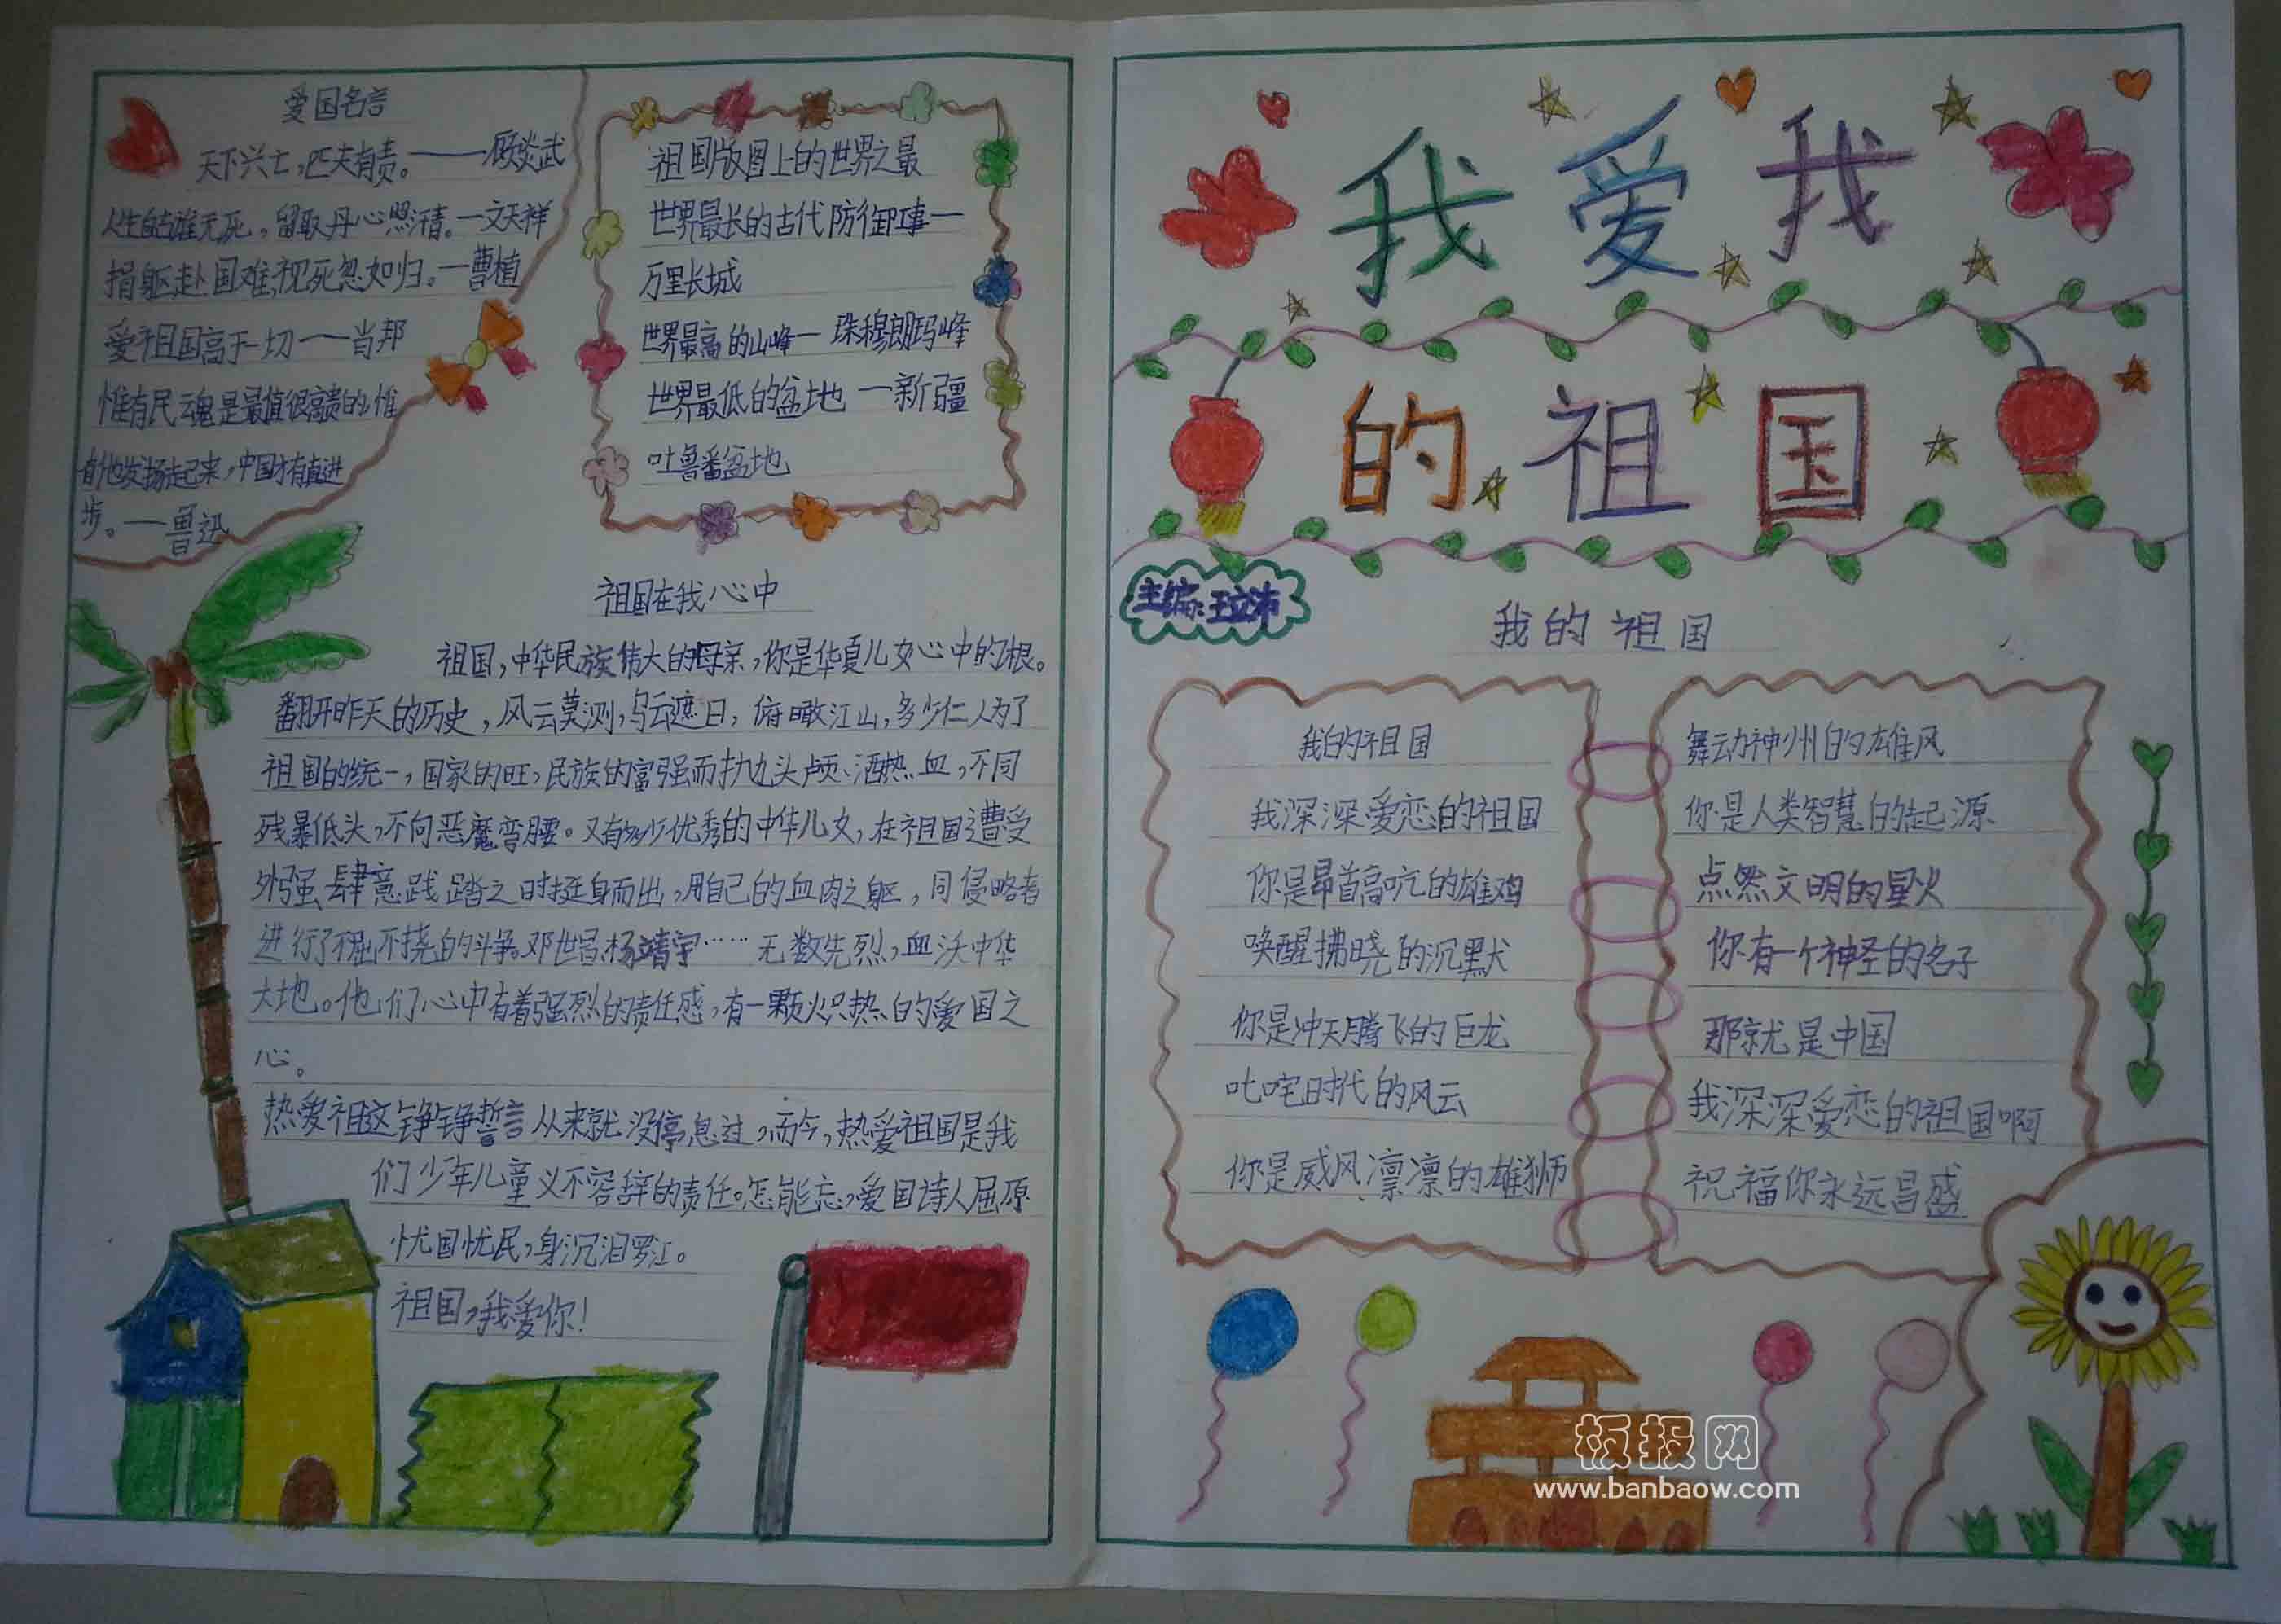 爱国名言
天下兴亡,匹夫有责。——顾炎武
人生自古谁无死,留取丹心照汗青。—文天祥
捐躯赴国难,视死忽如归。—曹植
爱祖国高于一切——肖邦
惟有民魂是最值很高贵的,惟
有他发扬起来,中国才有真进
步。——鲁迅
祖国版图上的世界之最
世界最长的古代防御事—
万里长城
世界最高的山峰—珠穆朗玛峰
世界最低的盆地—新疆
吐鲁番盆地
祖国在我心中
祖国,中华民族伟大的母亲,你是华夏儿女心中的根。
翻开昨天的历史,风云莫测,乌云遮日,俯瞰江山,多少仁人为了
祖国的统一,国家的旺,民族的富强而抛头颅、洒热血,不同
残暴低头,不向恶魔弯腰。又有多少优秀的中华儿女,在祖国遭受
外强肆意践踏之时挺身而出,用自己的血肉之躯,同侵略者
进行了不屈不挠的斗争。邓世昌、杨靖宇……无数先烈,血沃中华
大地。他们心中有着强烈的责任感,有一颗火炽热的爱国之
心。
热爱祖这铮铮誓言从来就没停息过,而今,热爱祖国是我
们少年儿童义不容辞的责任。怎能忘,爱国诗人屈原
忧国忧民,身沉汨罗江。
祖国,我爱你!
我爱我
的祖国
主编:王立沛
我的祖国
我的祖国
我深深爱恋的祖国
你是昂首高吭的雄鸡
唤醒拂晓的沉默
你是冲天腾飞的巨龙
叱咤时代的风云
你是威风凛凛的雄狮
舞动神州的雄风
你是人类智慧的起源
点然文明的星火
你有一个神圣的名子
那就是中国
我深深爱恋的祖国啊
祝福你永远昌盛
板报网
www.banbaow.com